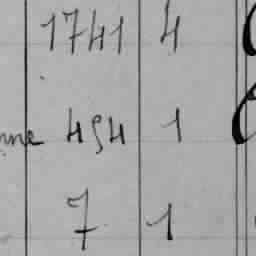 1741 4
454 1
7 1